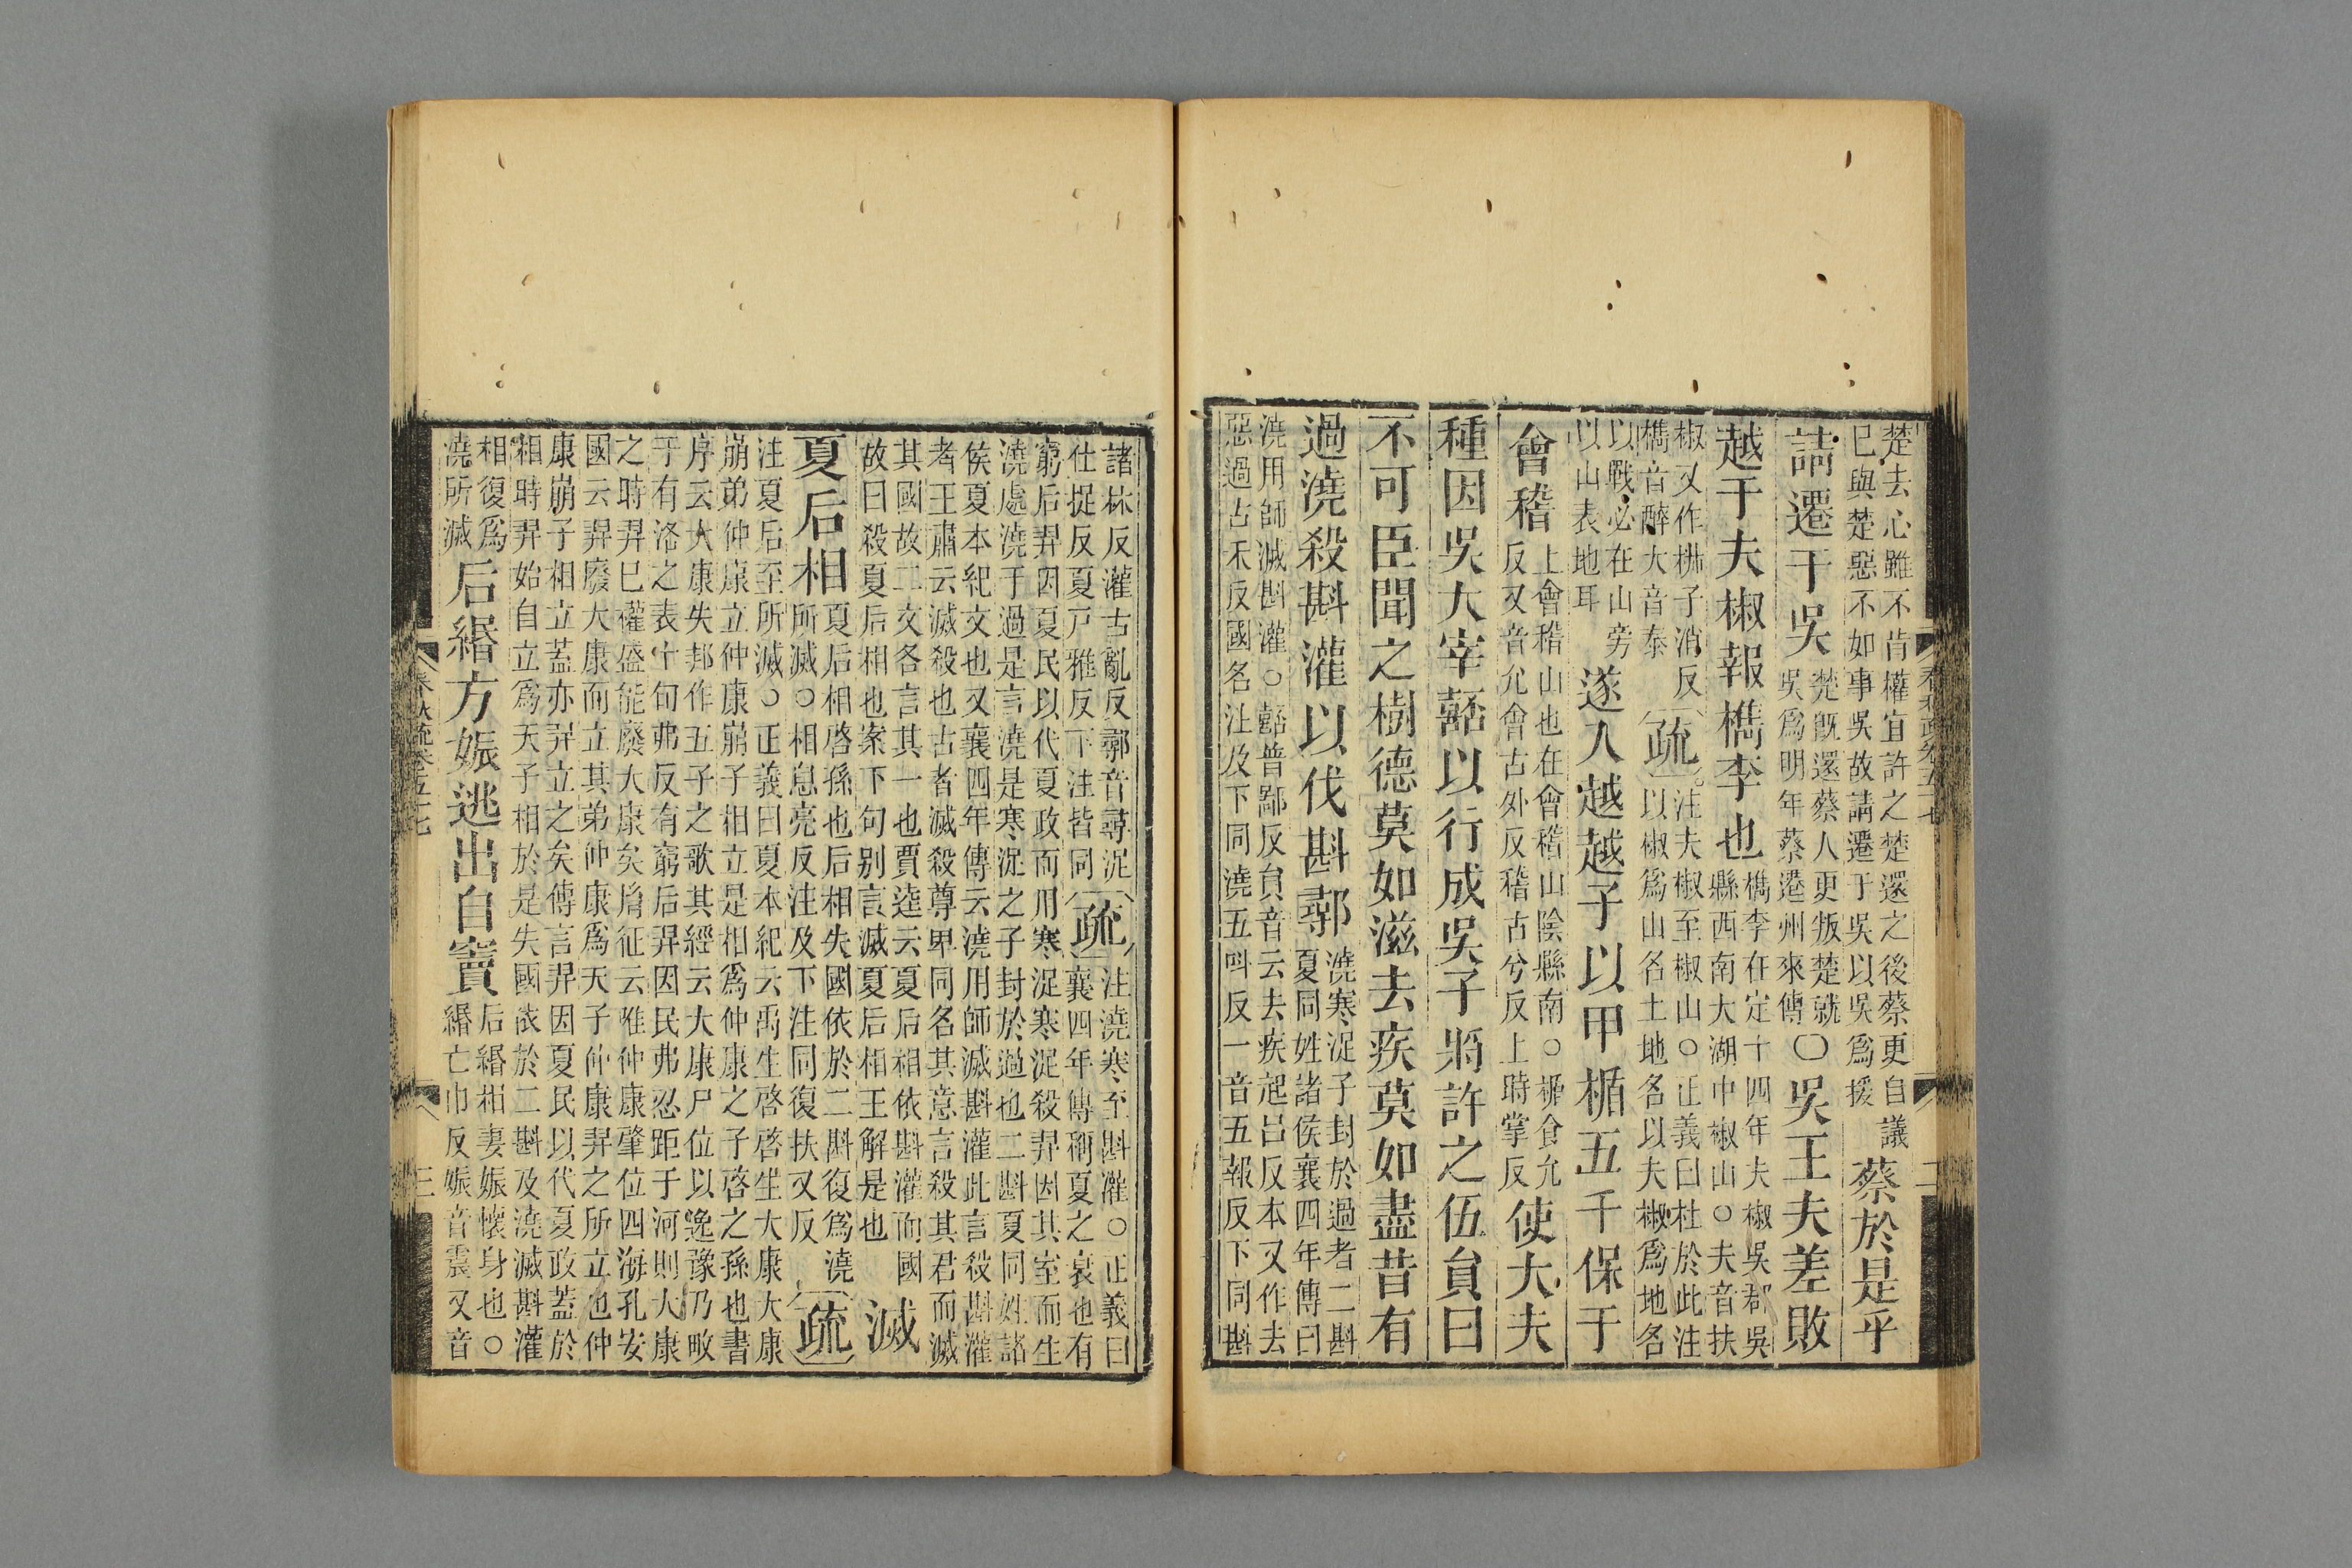 楚去心雖不肯權宜許之楚還之後蔡更自議
巳與楚惡不如事吳故請遷于吳以吳爲援
蔡於是乎
請遷于吳
楚既還蔡人更叛楚就
吳爲明年蔡遷州來傳
〇吳王夫差敗
越于夫椒報檇李也
檇李在定十四年夫椒吳郡吳
縣西南大湖中椒山○夫音扶
椒又作㭰子消反
檇音醉大音泰
疏
注夫椒至椒山○正義曰杜於此注
以椒爲山名土地名以夫椒爲地名
以戰必在山旁
以山表地耳
遂入越越子以甲楯五千保于
會稽
上會稽山也在會稽山陰縣南○楯食允
反又音允會古外反稽古兮反上時掌反
使大夫
種因吳大宰嚭以行成吳子將許之伍員曰
不可臣聞之樹德莫如滋去疾莫如盡昔有
過澆殺斟灌以伐斟鄩
澆寒浞子封於過者二斟
夏同姓諸侯襄四年傳曰
澆用師滅斟灌○嚭普鄙反員音云去疾起呂反本又作去
惡過古禾反國名注及下同澆五叫反一音五報反下同斟
諸林反灌古亂反鄩音尋浞
仕捉反夏戸雅反下注皆同
疏
注澆寒至斟灌○正義曰
襄四年傳稱夏之衰也有
窮后羿因夏民以代夏政而用寒浞寒浞殺羿因其室而生
澆處澆于過是言澆是寒浞之子封於過也二斟夏同姓諸
侯夏本紀文也又襄四年傳云澆用師滅斟灌此言殺斟灌
者王肅云滅殺也古者滅殺尊卑同名其意言殺其君而滅
其國故二文各言其一也賈逵云夏后相依斟灌而國
故曰殺夏后相也案下句别言滅夏后相王解是也
滅
夏后相
夏后相啓孫也后相失國依於二斟復爲澆
所滅○相息亮反注及下注同復扶又反
疏
注夏后至所滅○正義曰夏本紀云禹生啓啓生大康大康
崩弟仲康立仲康崩子相立是相爲仲康之子啓之孫也書
序云大康失邦作五子之歌其經云大康尸位以逸豫乃畋
于有洛之表十旬弗反有窮后羿因民弗忍距于河則大康
之時羿巳權盛能廢大康矣胤征云唯仲康肇位四海孔安
國云羿廢大康而立其弟仲康爲天子仲康羿之所立也仲
康崩子相立蓋亦羿立之矣傳言羿因夏民以代夏政蓋於
相時羿始自立爲天子相於是失國依於二斟及澆滅斟灌
相復爲
澆所滅
后緡方娠逃出自竇
后緡相妻娠懷身也○
緡亡巾反娠音震又音
春秋疏卷五七
三
二